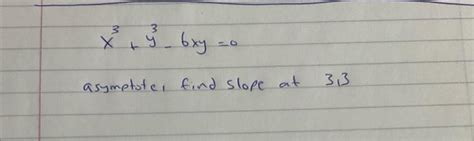 x³ + y³ - 6xy = 0
asymptote, find slope at 3,3